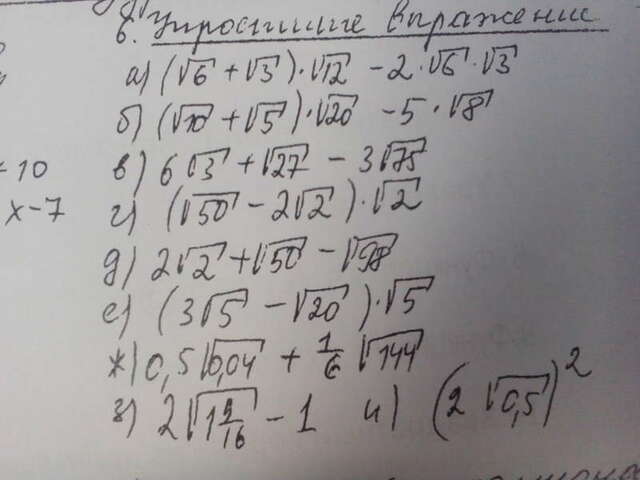 6. Упростите выражение
а) (√6 + √3)·√12 - 2·√6·√3
б) (√10 + √5)·√20 - 5·√8
в) 6√3 + √27 - 3√75
- 10
г) (√50 - 2√2)·√2
x - 7
д) 2√2 + √50 - √98
е) (3√5 - √20)·√5
ж) 0,5√0,04 + 1/6 √144
з) 2√1 9/16 - 1 и) (2√0,5)²